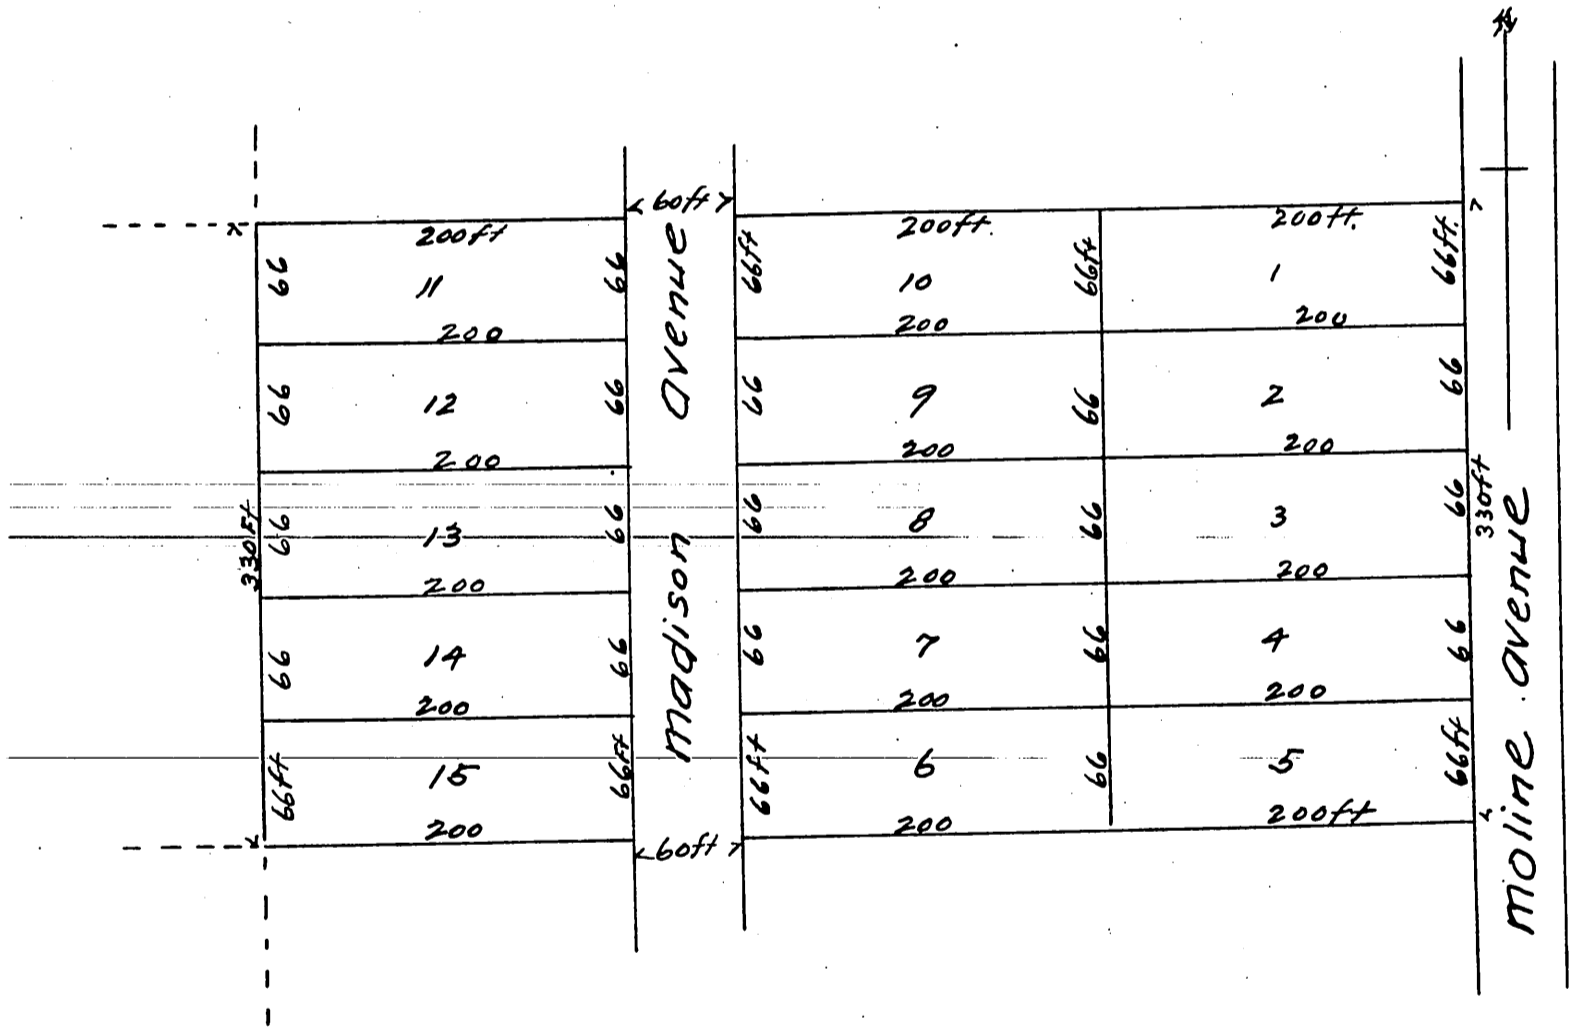 <60ft>
200ft
200ft.
200ft.
66
11
66
66ft
10
66ft
1
66ft.
200
200
200
66
12
66
66
9
66
2
66
200
200
200
330 Ft
66
13
66
66
8
66
3
66
330ft
200
200
200
66
14
66
66
7
66
4
66
200
200
200
66ft
15
66Ft
66ft
6
66
5
66ft
200
200
200ft
<60ft>
madison avenue
moline avenue